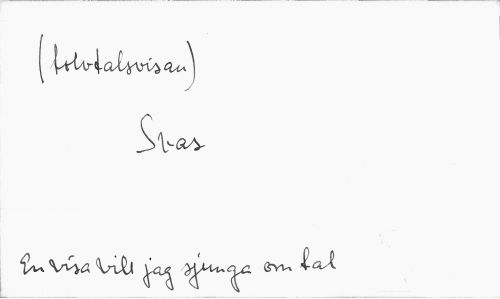 (tolvtalsvisan)
Svas
En visa vill jag sjunga om tal